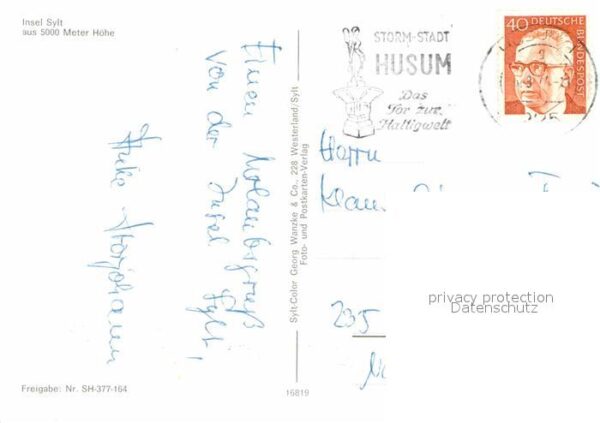 Insel Sylt
aus 5000 Meter Höhe
Einen Urlaubsgruß
von der Insel Sylt,
Freigabe: Nr. SH-377-164
Sylt-Color Georg Wanzke & Co., 228 Westerland/Sylt
Foto- und Postkarten-Verlag
16819
STORM-STADT
HUSUM
Das
Tor zur
Halligwelt
40 DEUTSCHE
BUNDESPOST
Herrn
235
privacy protection
Datenschutz